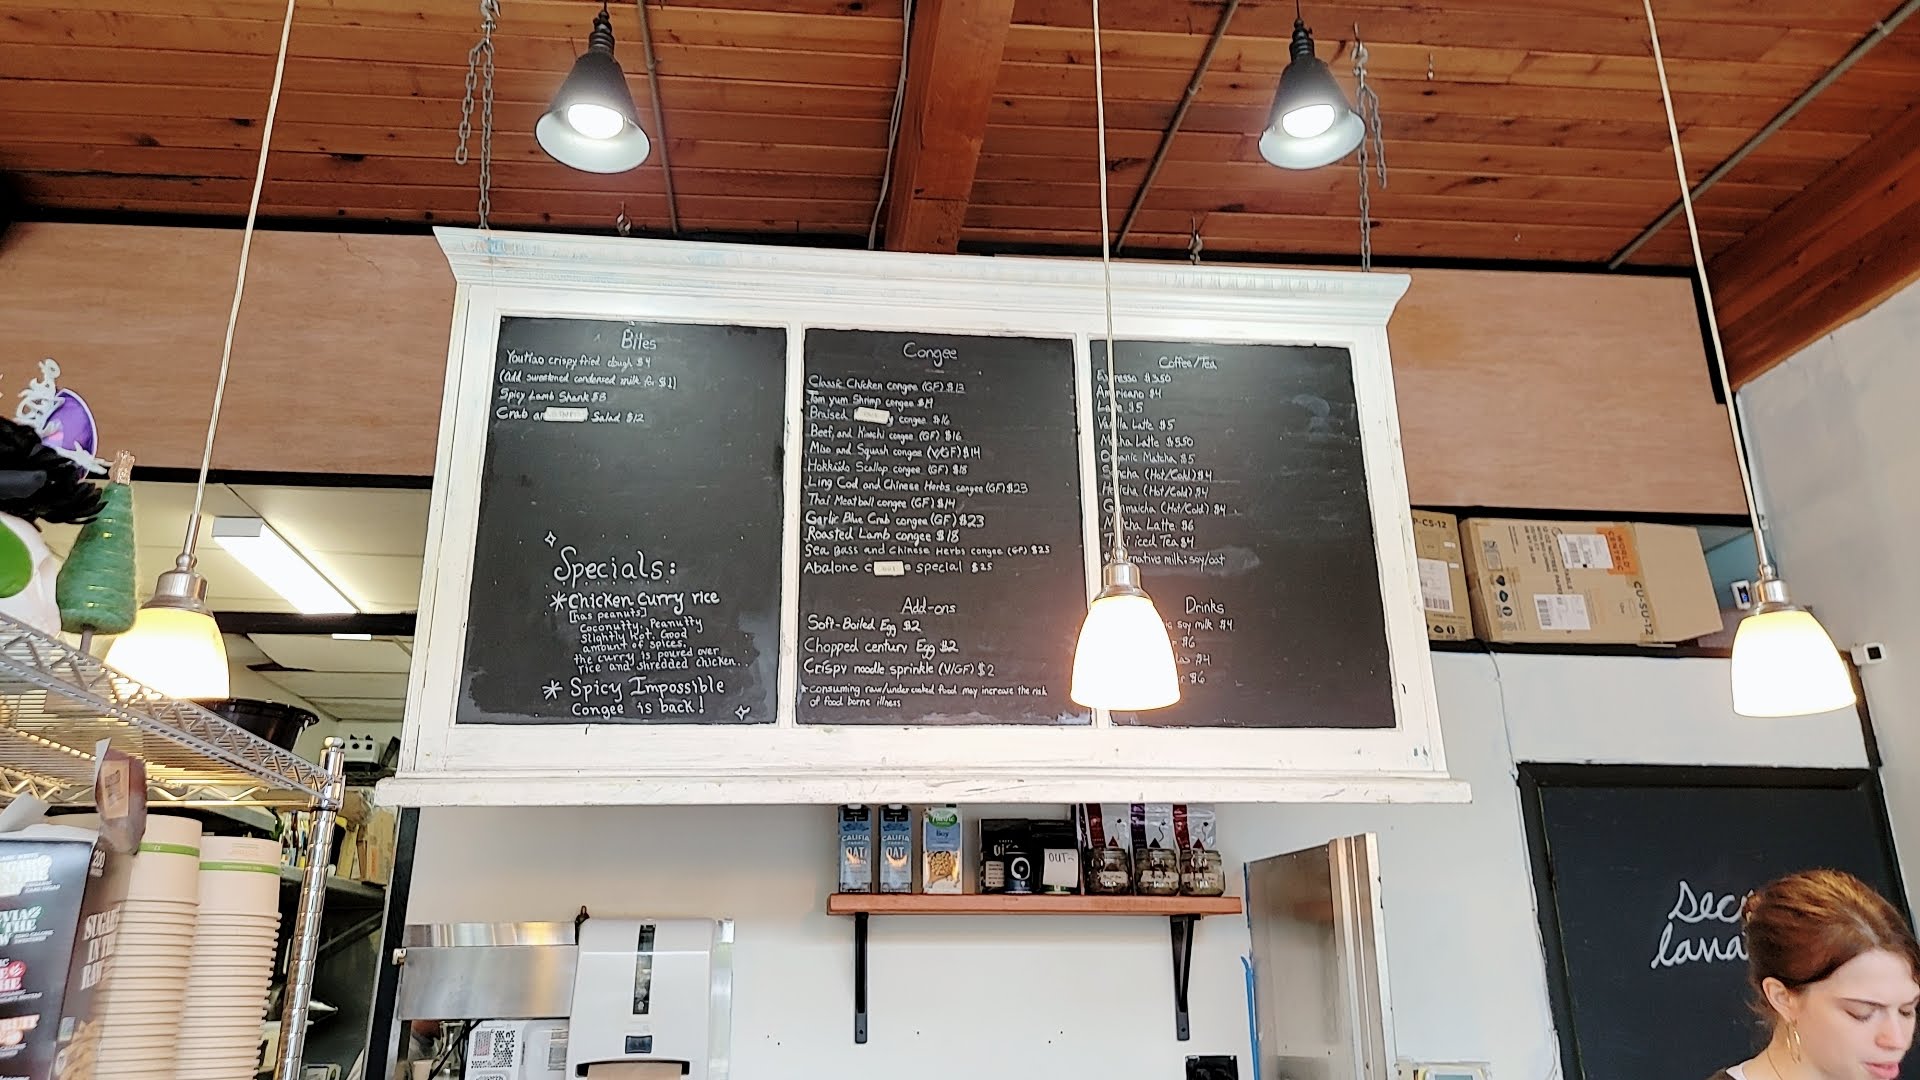 Bites
YouMao crispy fried dough $4
(Add sweetened condensed milk for $1)
Spicy Lamb Shank $8
Crab Salad $12
Specials:
*Chicken Curry rice
[has peanuts]
Coconutty, Peanutty
Slightly hot, Good
amount of spices,
the curry is poured over
rice and shredded chicken...
* Spicy Impossible
Congee is back!
Congee
Classic Chicken congee (GF) $13
Tom yum Shrimp congee $14
Braised congee $16
Beef, and Kimchi congee (GF) $16
Miso and Squash congee (V/GF) $14
Hokkaido Scallop congee (GF) $15
Ling Cod and Chinese Herbs congee (GF) $23
Thai Meatball congee (GF) $14
Garlic Blue Crab congee (GF) $23
Roasted Lamb congee $18
Sea Bass and Chinese Herbs congee (GF) $23
Abalone special $25
Add-ons
Soft-Boiled Egg $2
Chopped century Egg $2
Crispy noodle sprinkle (V/GF) $2
* consuming raw/undercooked food may increase the risk
of food borne illness
Coffee/Tea
$3.50
Americano $4
$5
Vanilla Latte $5
Latte $5.50
Organic Matcha $5
Sencha (Hot/Cold) $4
(Hot/Cold) $4
Genmaicha (Hot/Cold) $4
Matcha Latte $6
Thai iced Tea $4
milk: soy/oat
Drinks
soy milk $4
$6
$4
$6
CALIFIA
OAT
CALIFIA
OAT
OUT
CU-SLU-12
P-CS-12
WORLD
CENTRIC
SUGAR
IN THE
RAW